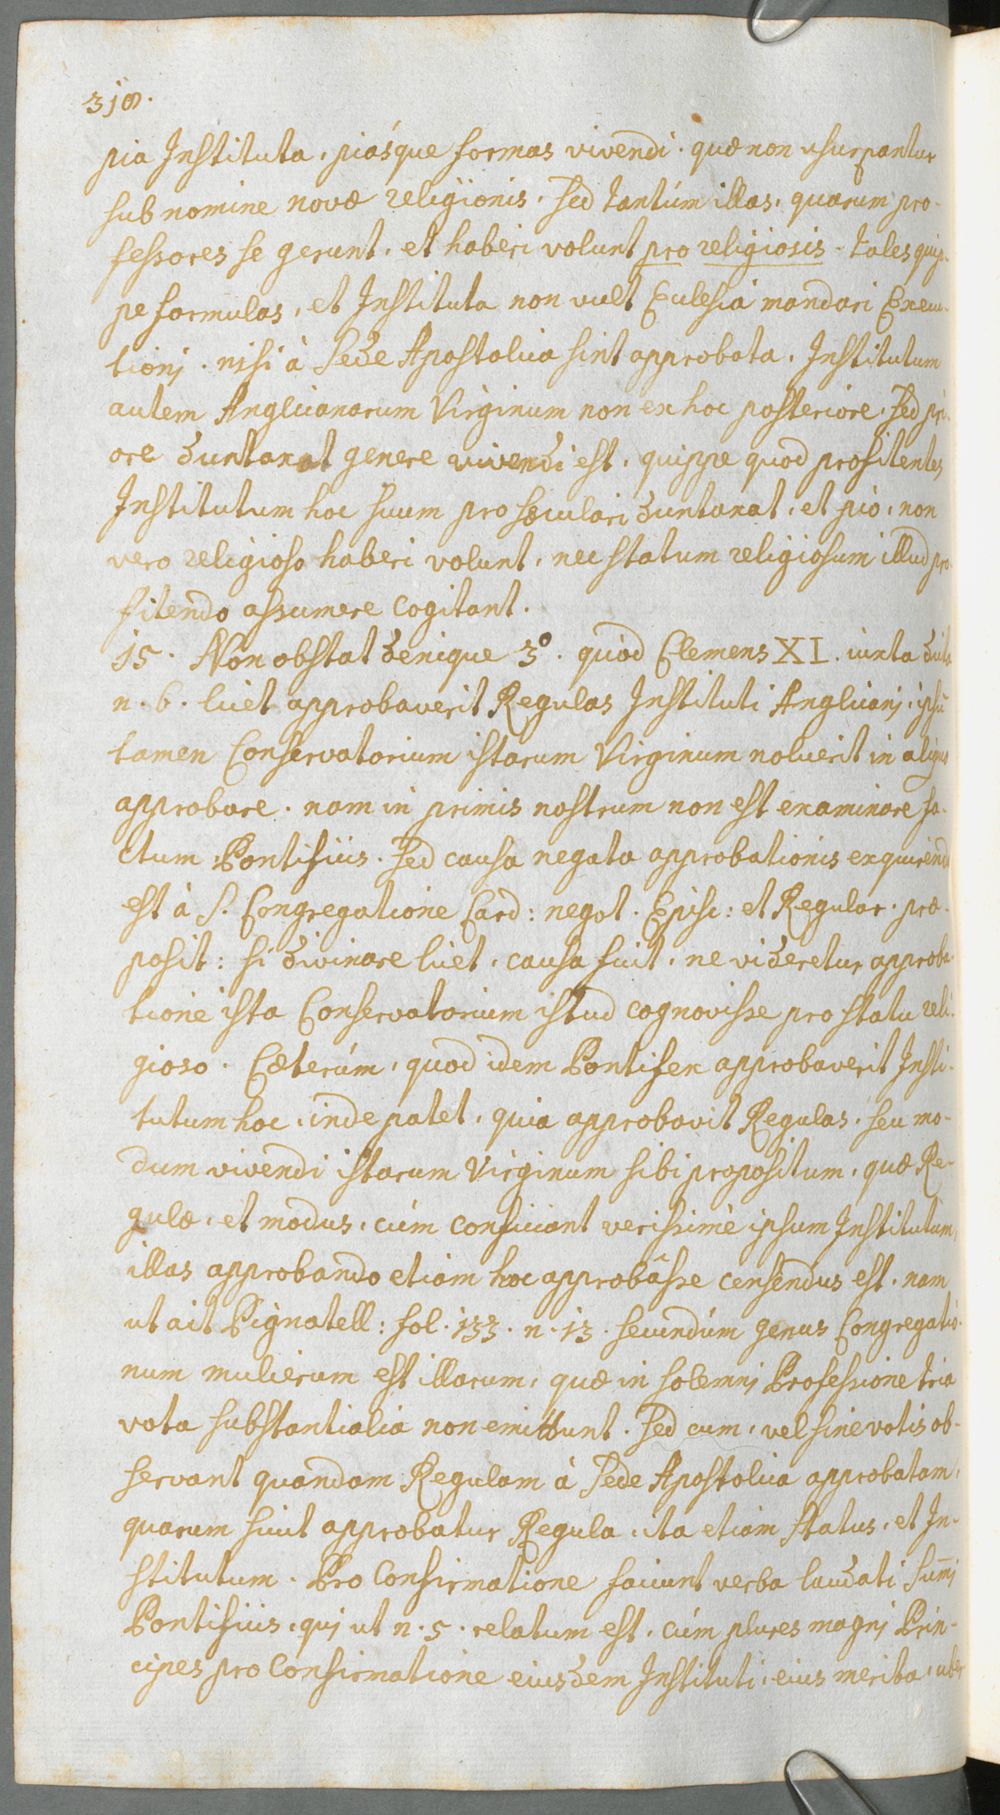 318.
pia Instituta, piásque formas vivendi, quæ non usurpantur
sub nomine novæ religionis, sed tantúm illas, quarum pro-
fessores se gerunt, et haberi volunt pro religiosis - tales quip-
pe formulas, et Instituta non vult Ecclesia mandari Execu-
tioni, nisi à Sede Apostolica sint approbata. Institutum
autem Anglicanarum Virginum non ex hoc posteriore, sed pri-
ore duntaxat genere vivendi est, quippe quod profitentes
Institutum hoc suum pro sæculari duntaxat, et pio, non
vero religioso haberi volunt, nec statum religiosum illud pro-
fitendo assumere cogitant.
15. Non obstat denique 3º. quòd Clemens XI. iuxta dicta
n. 6. licet approbaverit Regulas Instituti Anglicani, ipsū
tamen Conservatorium istarum Virginum noluerit in aliquo
approbare. nam in primis nostrum non est examinare fa-
ctum Pontificis. Sed causa negata approbationis exquirenda
est à S. Congregatione Card: negot. Episc: et Regular. præ-
posit: si divinare licet, causa fuit, ne videretur approba-
tione ista Conservatorium istud cognovisse pro statu reli-
gioso. Cæterúm, quod idem Pontifex approbaverit Insti-
tutum hoc, inde patet, quia approbavit Regulas, seu mo-
dum vivendi istarum Virginum sibi propositum, quæ Re-
gulæ, et modus, cúm conficiant verissimè ipsum Institutum,
illas approbando etiam hoc approbâsse censendus est. nam
ut ait Pignatell: fol. 133. n. 13. secundúm genus Congregatio-
num mulierum est illarum, quæ in solemni Professione tria
vota substantialia non emittunt. Sed cum, vel sine votis ob-
servant quandam Regulam à Sede Apostolica approbatam,
quarum sicut approbatur Regula, ita etiam status, et In-
stitutum. Pro Confirmatione faciunt verba laudati Sum̄i
Pontificis, qui ut n. 5. relatum est, cúm plures magni Prin-
cipes pro Confirmatione eiusdem Instituti, eius merita, uber